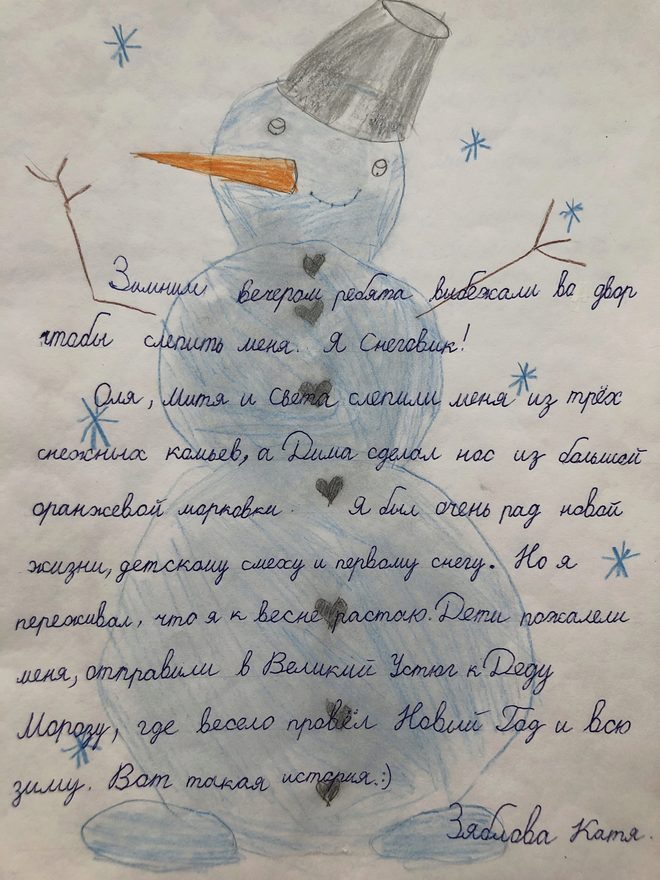 Зимним вечером ребята выбежали во двор
чтобы слепить меня. Я Снеговик!
Оля, Митя и Света слепили меня из трёх
снежных комьев, а Дима сделал нос из большой
оранжевой морковки. Я был очень рад новой
жизни, детскому смеху и первому снегу. Но я
переживал, что я к весне растаю. Дети пожалели
меня, отправили в Великий Устюг к Деду
Морозу, где весело провёл Новый Год и всю
зиму. Вот такая история.:)
Зяблова Катя.